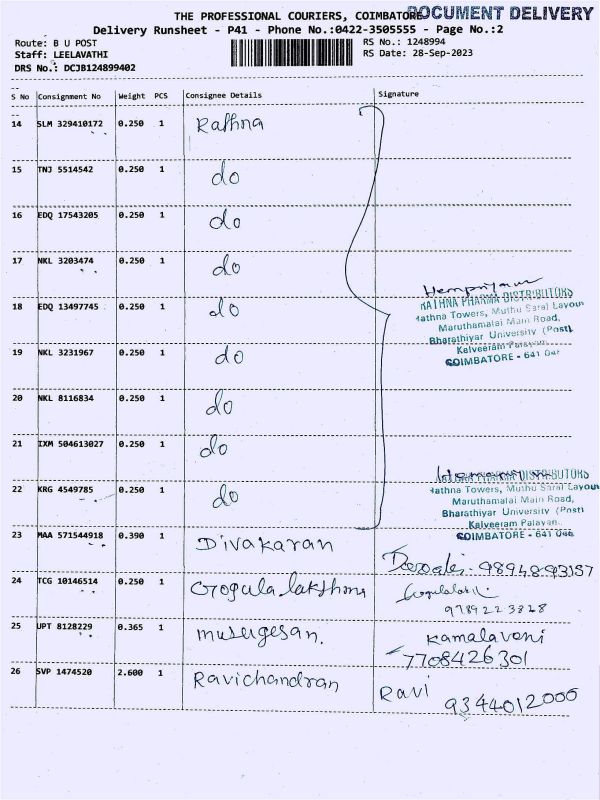 THE PROFESSIONAL COURIERS, COIMBATORE
DOCUMENT DELIVERY
Delivery Runsheet - P41 - Phone No.:0422-3505555 - Page No.:2
Route: B U POST
RS No.: 1248994
Staff: LEELAVATHI
RS Date: 28-Sep-2023
DRS No.: DCJB124899402
S No Consignment No Weight PCS Consignee Details Signature
14 SLM 329410172 0.250 1 Rathna
15 TNJ 5514542 0.250 1 do
16 EDQ 17543205 0.250 1 do
17 NKL 3203474 0.250 1 do
RATHNA PHARMA DISTRIBUTORS
Rathna Towers, Muthu Saral Layout
Maruthamalai Main Road,
Bharathiyar University (Post)
Kalveeram Palayan
COIMBATORE - 641 046
18 EDQ 13497745 0.250 1 do
19 NKL 3231967 0.250 1 do
20 NKL 8116834 0.250 1 do
21 IXM 504613027 0.250 1 do
22 KRG 4549785 0.250 1 do
RATHNA PHARMA DISTRIBUTORS
Rathna Towers, Muthu Saral Layout
Maruthamalai Main Road,
Bharathiyar University (Post)
Kalveeram Palayan.
COIMBATORE - 641 046
23 MAA 571544918 0.390 1 Divakaran 9894893157
24 TCG 10146514 0.250 1 Gogula lakshma
9789223828
25 UPT 8128229 0.365 1 Murugesan. Kamalaveni
7708426301
26 SVP 1474520 2.600 1 Ravichandran Ravi 9344012006